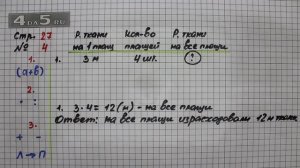 4DA5.RU
Стр. 27
№ 4
1.
(а+в)
2.
· :
3.
+ -
Л → П
Р. ткани Кол-во Р. ткани
на 1 плащ плащей на все плащи
1. 3 м 4 шт. ?
1. 3·4=12 (м) - на все плащи
Ответ: на все плащи израсходовали 12 м ткани